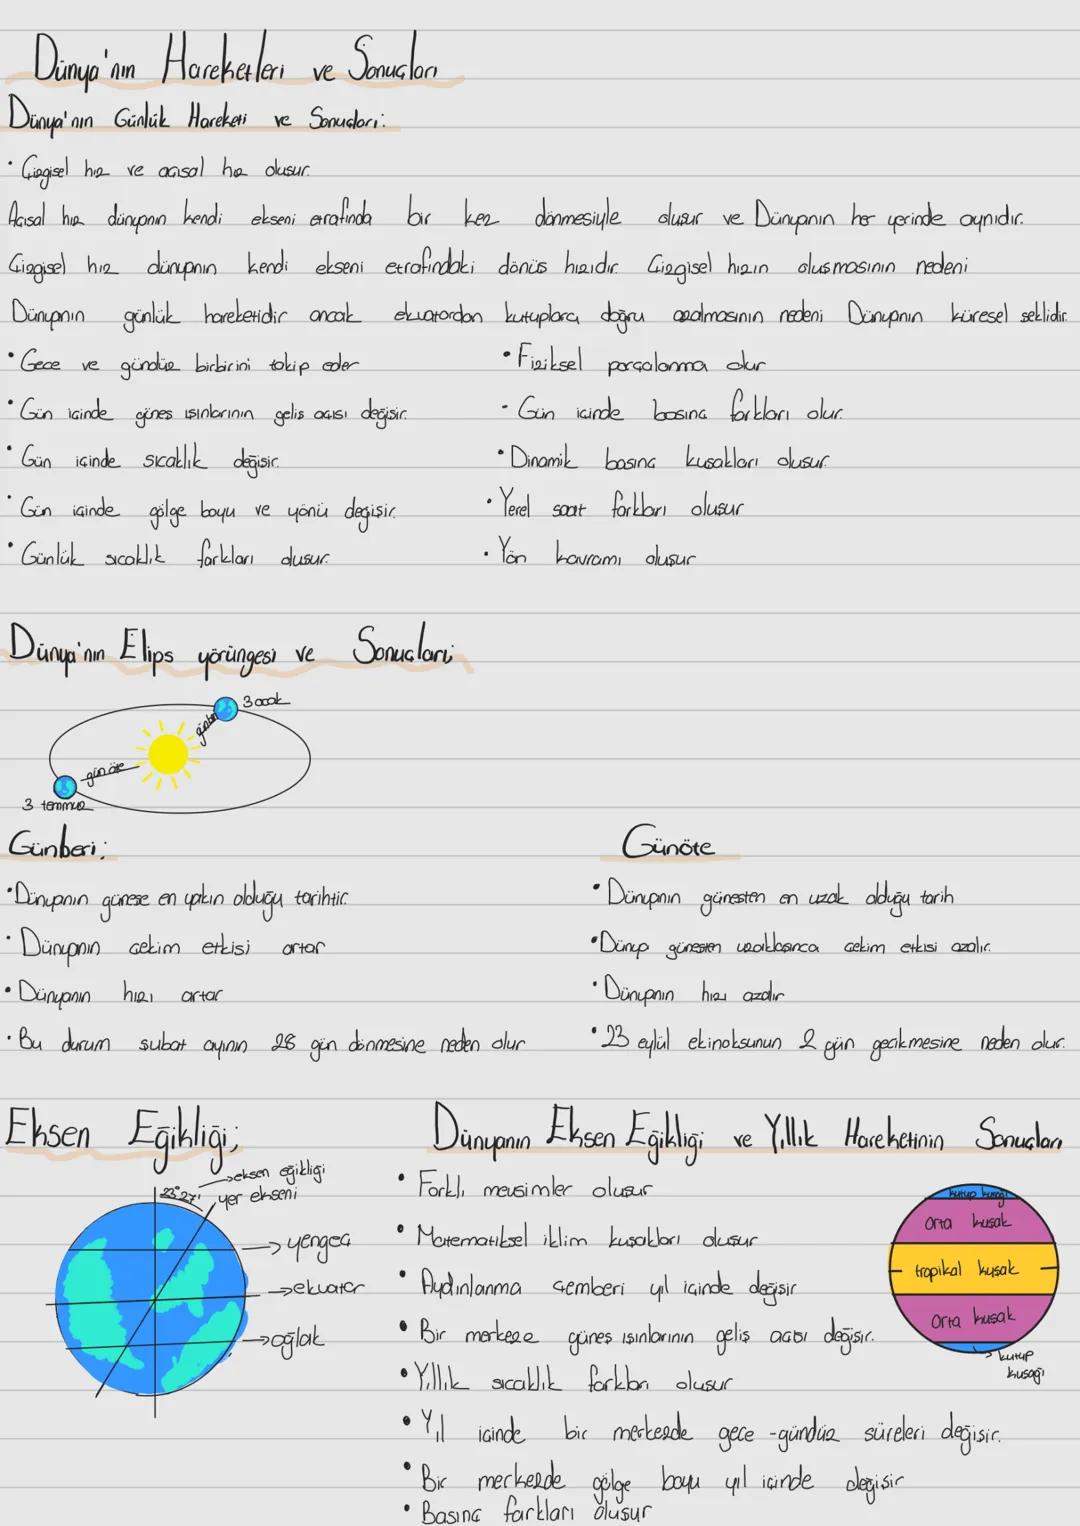 Dünya'nın Hareketleri ve Sonuçları
Dünya'nın Günlük Hareketi ve Sonuçları:
• Çizgisel hız ve açısal hız oluşur.
Açısal hız dünyanın kendi ekseni etrafında bir kez dönmesiyle oluşur ve Dünyanın her yerinde aynıdır.
Çizgisel hız dünyanın kendi ekseni etrafındaki dönüş hızıdır. Çizgisel hızın oluşmasının nedeni
Dünyanın günlük hareketidir ancak ekvatordan kutuplara doğru azalmasının nedeni Dünyanın küresel şeklidir.
• Gece ve gündüz birbirini takip eder
• Gün içinde güneş ışınlarının geliş açısı değişir.
• Gün içinde sıcaklık değişir.
• Gün içinde gölge boyu ve yönü değişir.
• Günlük sıcaklık farkları oluşur.
• Fiziksel parçalanma olur
• Gün içinde basınç farkları olur.
• Dinamik basınç kuşakları oluşur.
• Yerel saat farkları oluşur
• Yön kavramı oluşur
Dünya'nın Elips yörüngesi ve Sonuçları;
3 ocak
günberi
günöte
3 temmuz
Günberi;
• Dünyanın güneşe en yakın olduğu tarihtir.
• Dünyanın çekim etkisi artar
• Dünyanın hızı artar
• Bu durum şubat ayının 28 gün dönmesine neden olur
Günöte
• Dünyanın güneşten en uzak olduğu tarih
• Dünya güneşten uzaklaşınca çekim etkisi azalır.
• Dünyanın hızı azalır
• 23 eylül ekinoksunun 2 gün gecikmesine neden olur.
Eksen Eğikliği;
23°27'
eksen eğikliği
yer ekseni
yengeç
ekvator
oğlak
Dünyanın Eksen Eğikliği ve Yıllık Hareketinin Sonuçları
• Farklı mevsimler oluşur
• Matematiksel iklim kuşakları oluşur
• Aydınlanma çemberi yıl içinde değişir
• Bir merkeze güneş ışınlarının geliş açısı değişir.
• Yıllık sıcaklık farkları oluşur
• Yıl içinde bir merkezde gece-gündüz süreleri değişir.
• Bir merkezde gölge boyu yıl içinde değişir
• Basınç farkları oluşur
kutup kuşağı
Orta kuşak
tropikal kuşak
Orta kuşak
kutup
kuşağı